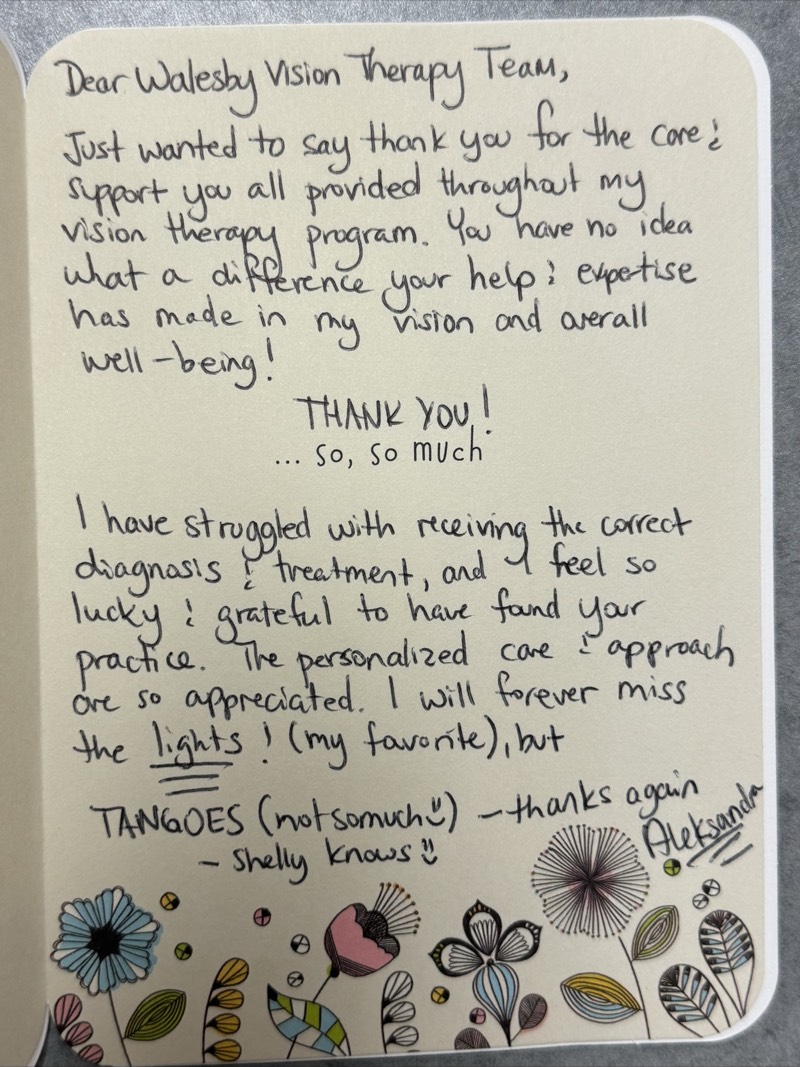 Dear Walesby Vision Therapy Team,
Just wanted to say thank you for the care &
support you all provided throughout my
vision therapy program. You have no idea
what a difference your help & expertise
has made in my vision and overall
well-being!
THANK YOU!
... so, so much
I have struggled with receiving the correct
diagnosis & treatment, and I feel so
lucky & grateful to have found your
practice. The personalized care & approach
are so appreciated. I will forever miss
the lights! (my favorite), but
TANGOES (notsomuch☺) - thanks again
Aleksandra
- Shelly knows☺